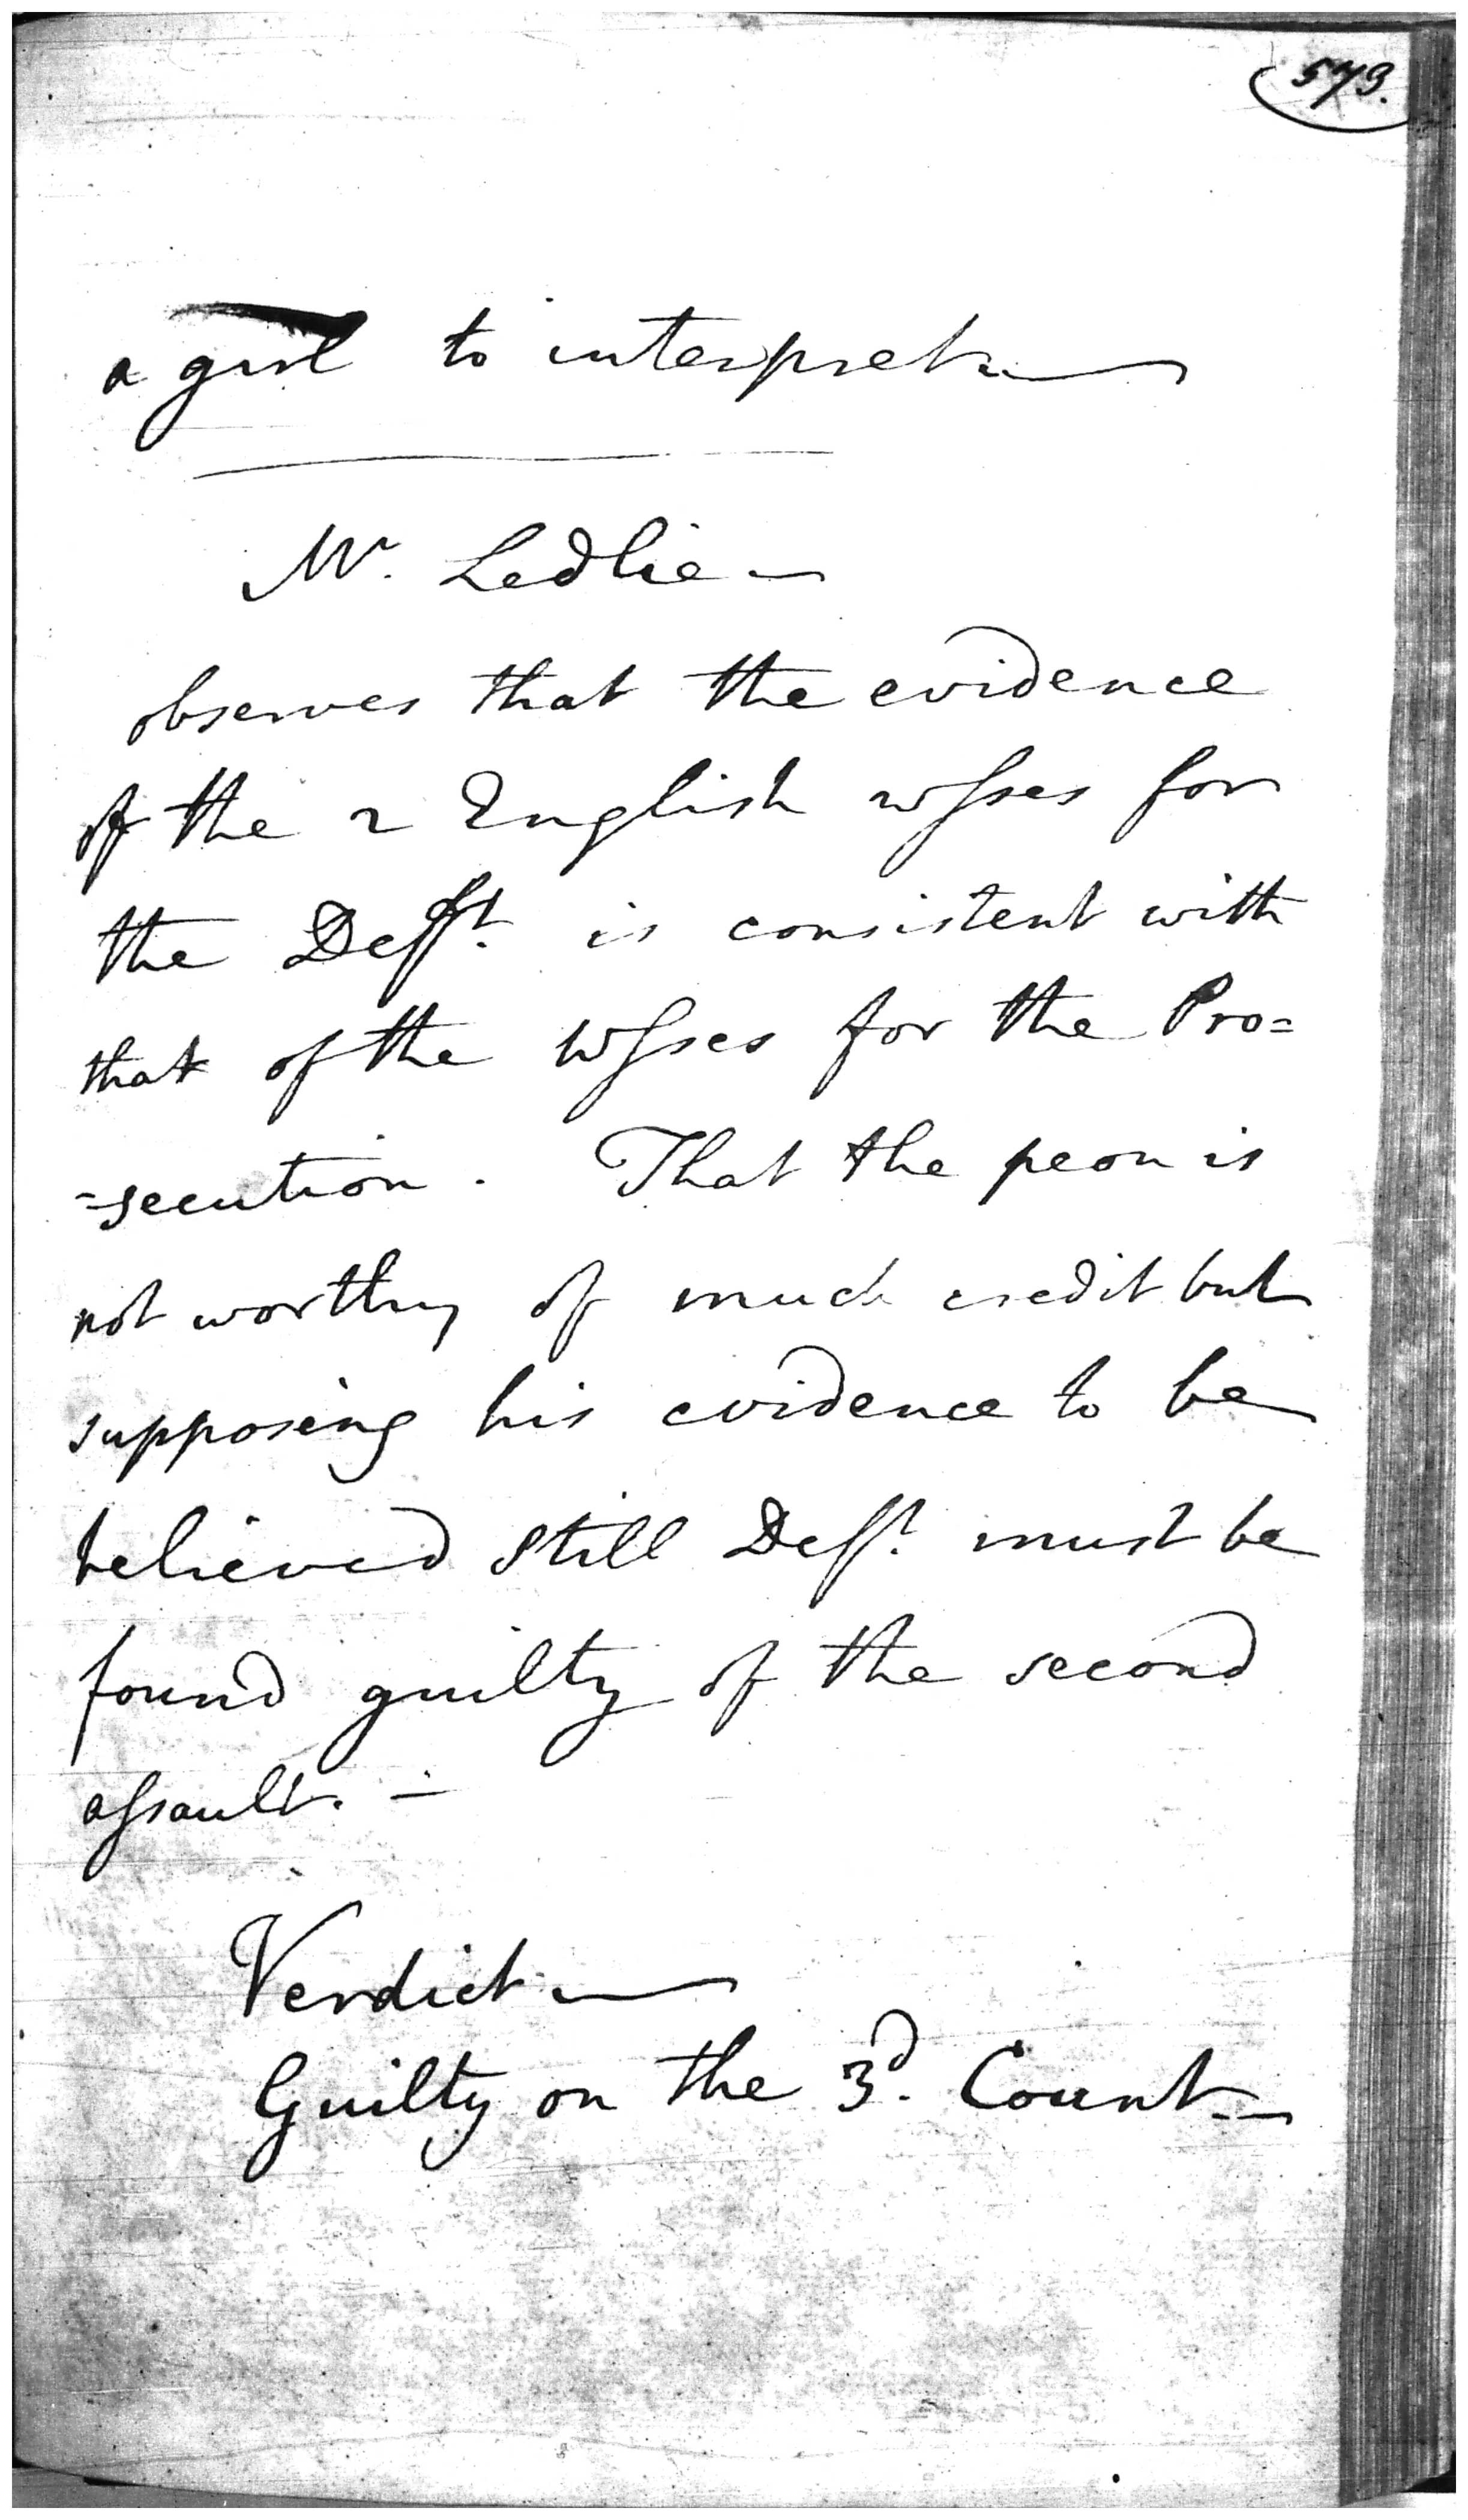 573.
a girl to interpret —
Mr. Ledlie —
observes that the evidence
of the 2 English wsses for
the Defft. is consistent with
that of the wsses for the Pro=
=secution. That the peon is
not worthy of much credit but
supposing his evidence to be
believed still Deft. must be
found guilty of the second
assault. —
Verdict —
Guilty on the 3d. Count. —